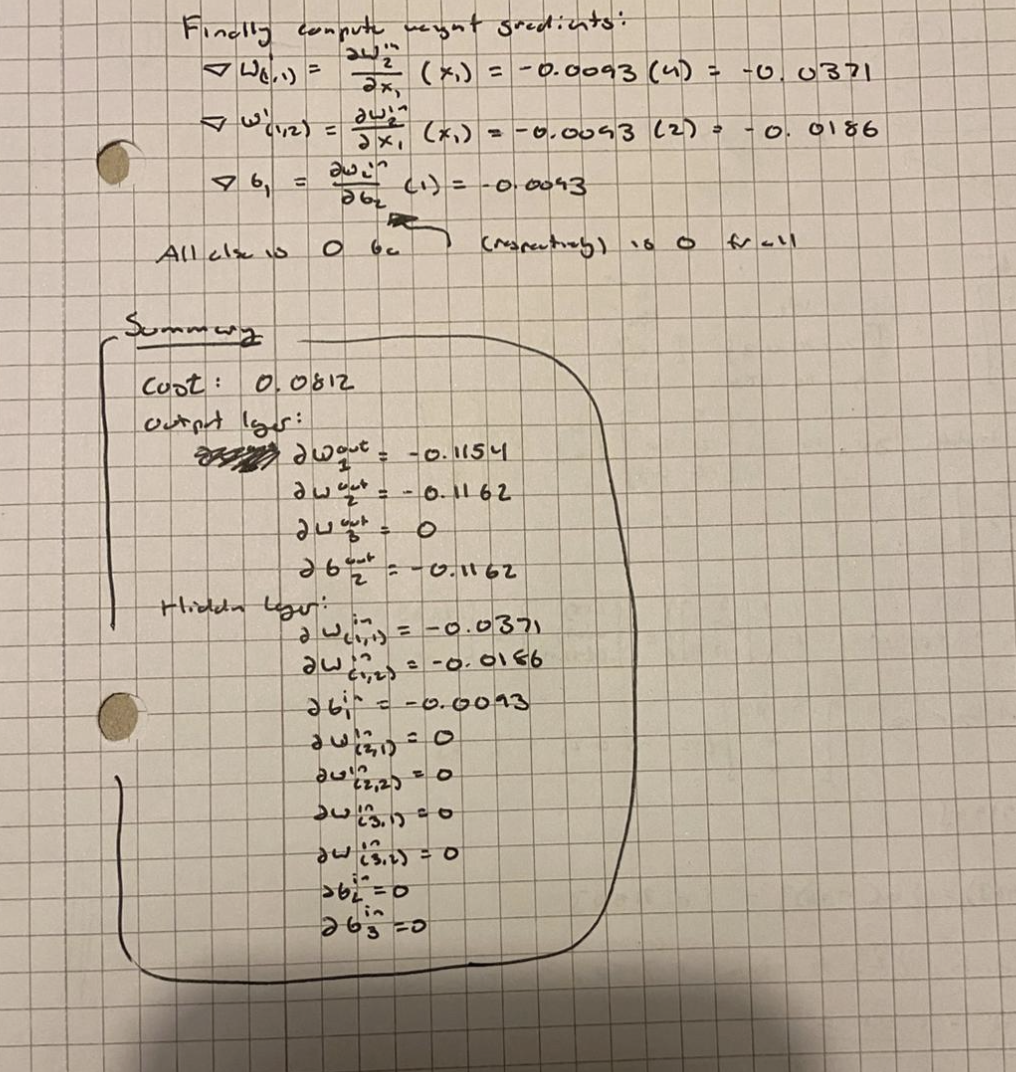 Finally compute weight gradients:
∇ W(1,1) = ∂w₂ⁱⁿ/∂x₁ (x₁) = -0.0093 (4) = -0.0371
∇ w'(1,2) = ∂w₂ⁱⁿ/∂x₁ (x₁) = -0.0093 (2) = -0.0186
∇ b₁ = ∂w₂ⁱⁿ/∂b₂ (1) = -0.0093
All else is 0 bc (respectively) is 0 for all
Summary
Cost: 0.0812
output layer:
∂w₁ᵒᵘᵗ = -0.1154
∂w₂ᵒᵘᵗ = -0.1162
∂w₃ᵒᵘᵗ = 0
∂b₂ᵒᵘᵗ = -0.1162
Hidden layer:
∂wⁱⁿ(1,1) = -0.0371
∂wⁱⁿ(1,2) = -0.0186
∂b₁ⁱⁿ = -0.0093
∂wⁱⁿ(2,1) = 0
∂wⁱⁿ(2,2) = 0
∂wⁱⁿ(3,1) = 0
∂wⁱⁿ(3,2) = 0
∂b₂ⁱⁿ = 0
∂b₃ⁱⁿ = 0